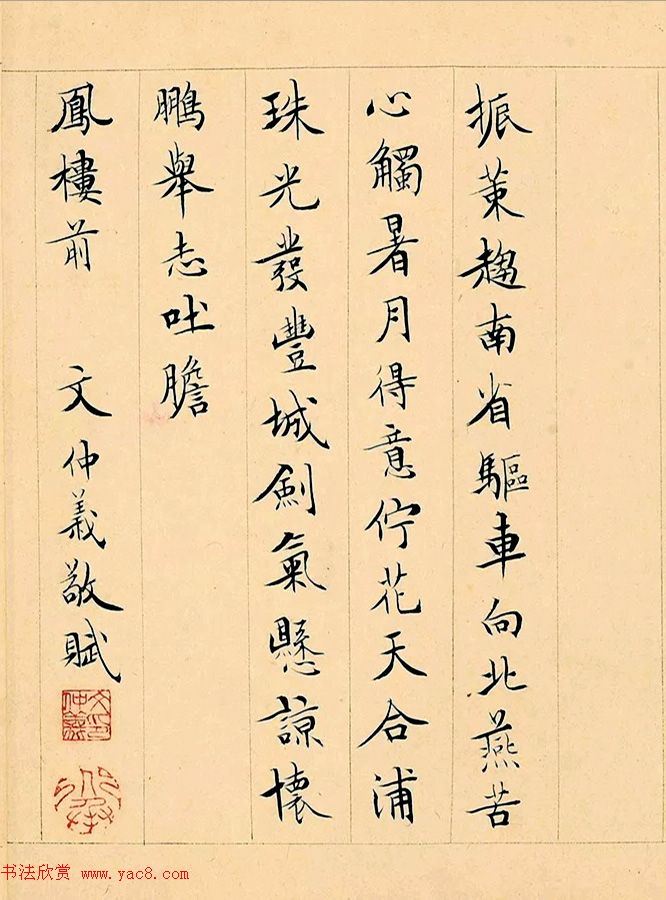 振策趨南省驅車向北燕苦
心觸暑月得意佇花天合浦
珠光發豐城劍氣懸諒懷
鵬舉志吐膽
鳳樓前 文仲義敬賦
文仲義印
书法欣赏 www.yac8.com